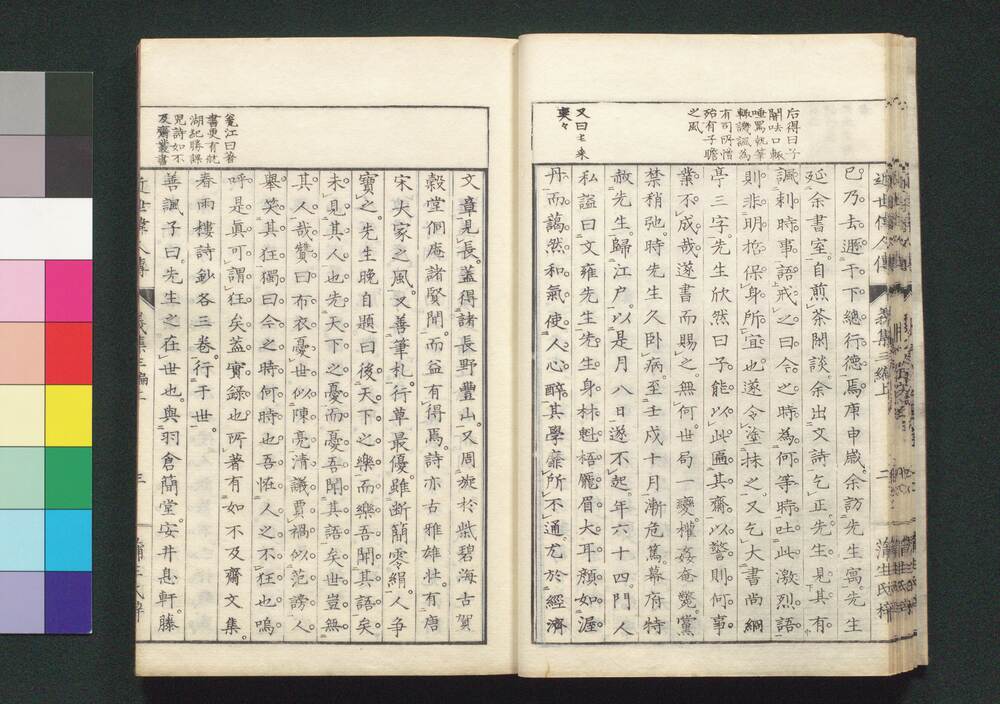 近世偉人傳 義集三編上 二 蒲生氏梓
后得曰子
唾罵就筆
輙譏諷為
有司所憎
殆有子瞻
之風
又曰七来
奕々
巳乃去遯于下總行德焉庚申歳余訪先生寓先生
延余書室自煎茶閑談余出文詩乞正先生見其有
諷刺時事語戒之曰今之時為何等時吐此激烈語
則非明哲保身所宜也遂令塗抹之又乞大書尚絅
亭三字先生欣然曰子能以此匾其齋以警則何事
業不成哉遂書而賜之無何世局一變權姦奄斃黨
禁稍弛時先生久卧病至壬戌十月漸危篤幕府特
赦先生歸江戸以是月八日遂不起年六十四門人
私諡曰文雍先生先生身材魁梧厖眉大耳顔如渥
丹而藹然和氣使人心醉其學靡所不通尤於經濟
篁江曰著
書更有
湖紀勝課
児詩如不
及齋叢書
文章見長蓋得諸長野豐山又周旋於紫碧海古賀
穀堂侗庵諸賢間而益有得焉詩亦古雅雄壮有唐
宋大家之風又善筆札行草最優雖断簡零絹人争
寶之先生晩自題曰後天下之樂而樂吾聞其語矣
未見其人也先天下之憂而憂吾聞其語矣世豈無
其人哉贊曰布衣憂世似陳亮清議賈禍似范滂人
舉笑其狂獨曰今之時何時也吾恠人之不狂也嗚
呼是眞可謂狂矣蓋實録也所著有如不及齋文集
春雨樓詩鈔各三卷行于世
善諷子曰先生之在世也與羽倉簡堂安井息軒藤
近世偉人傳 義集三編上 三 蒲生氏梓